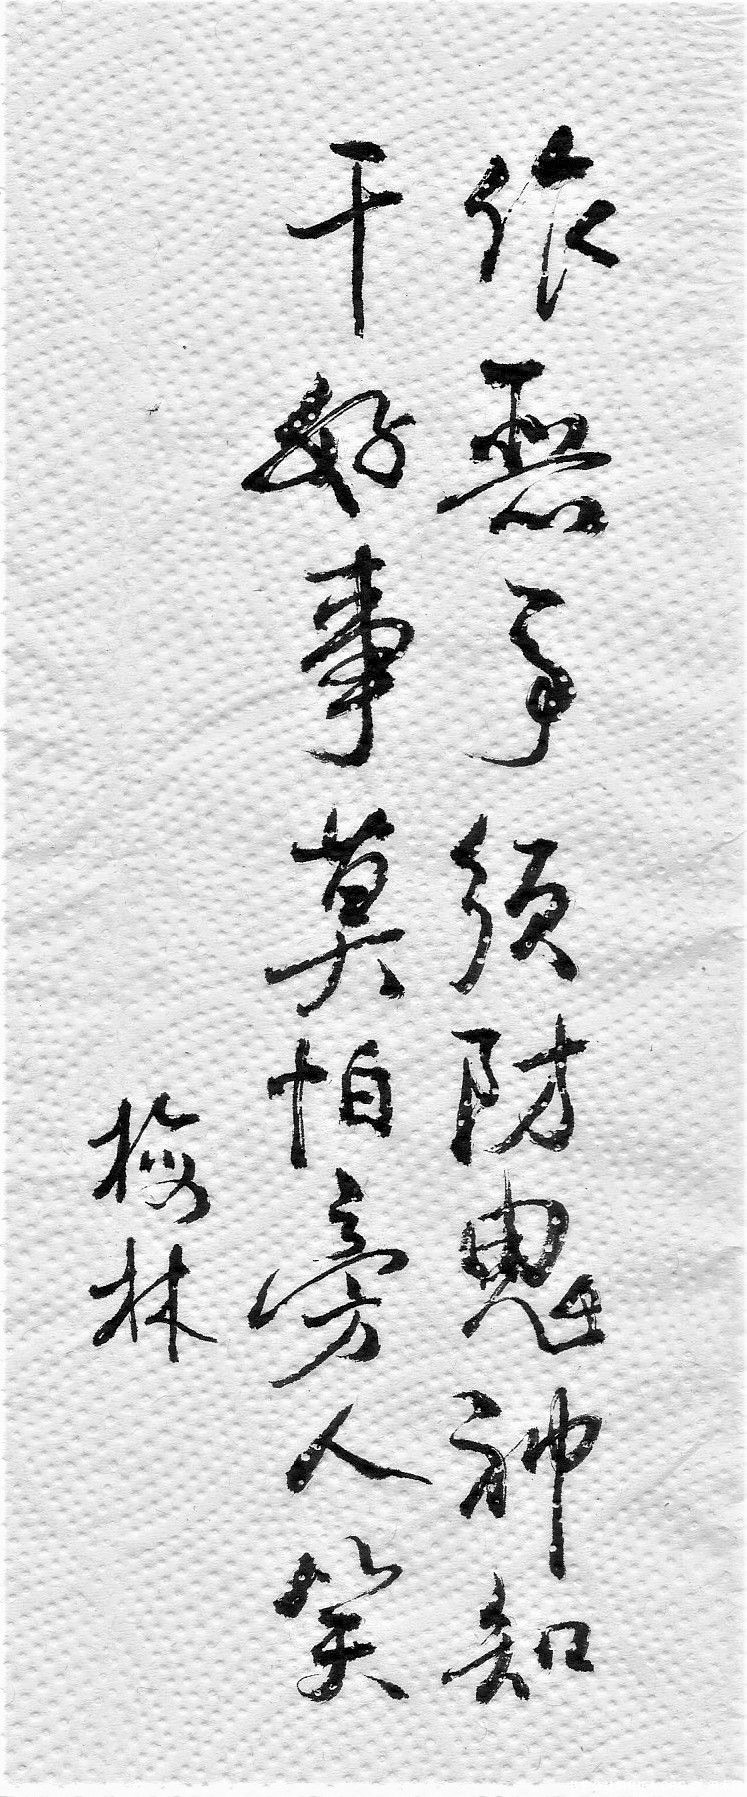 作恶事须防鬼神知
干好事莫怕旁人笑
梅林